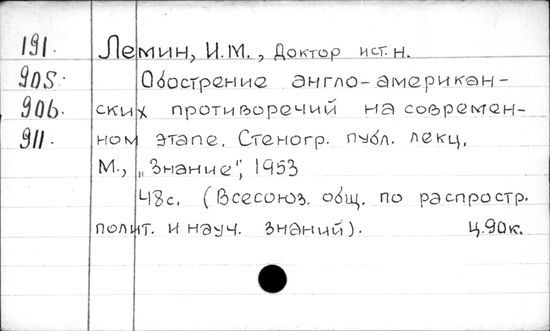 191. Лемин, И.М., Доктор ист. н.
905. Обострение англо-американ-
906. ских противоречий на современ-
911. ном этапе. Стеногр. публ. лекц.
М., „Знание", 1953
48с. (Всесоюз. общ. по распростр.
полит. и науч. знаний). ц.90к.